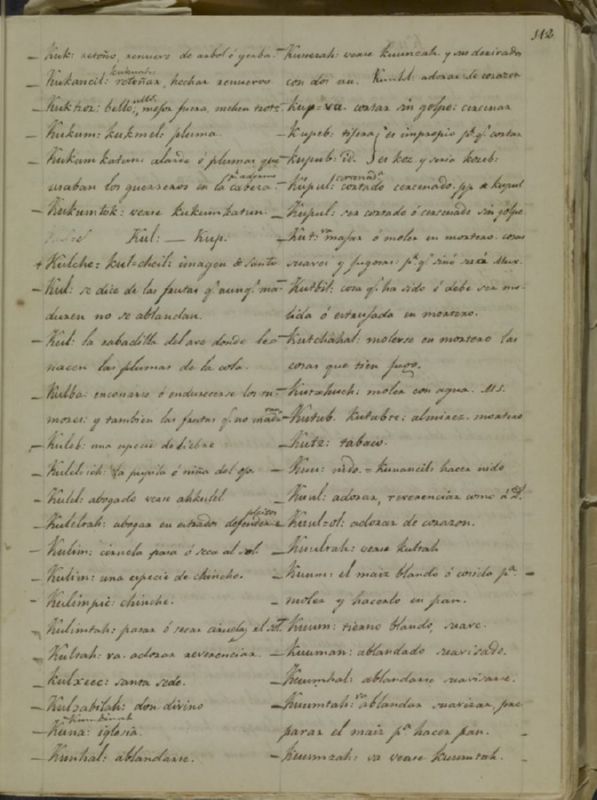 112
Kuk: retoño, renuevo de arbol ó yerba.
Kukancil: retoñar, hechar renuevos
Kukum: kukmel: pluma.
Kukum katun: alarde ó plumas que
usaban los guerreros en la cabeza.
Kukumtok: vease kukumkatun.
Kul: — Kup.
+ Kulche: kul=cheil: imagen de santo
Kul: se dice de las frutas q.e aunq.e ma-
duren no se ablandan.
Kul: la rabadilla del ave donde le
nacen las plumas de la cola.
Kulba: enconarse ó endurecerse los tu-
mores: y tambien las frutas q.e no
Kuleb: una especie de liebre
Kulelich: la pupila ó niña del ojo.
Kulel: abogado vease ahkulel
Kuleltah: abogar en estrados defender
Kulim: ciruela pasa ó seca al sol.
Kulim: una especie de chinche.
Kulimpic: chinche.
Kulimtah: pasar ó secar ciruelas al sol.
Kultah: va. adorar reverenciar.
Kulxecc: santa sede.
Kulzabilah: don divino
Kuna: iglesia.
Kunhal: ablandarse.
Kuncrah: vease kuuncah y sus derivados
con dos uu. Kunhl: adorar de corazon
Kup=va. cortar sin golpe: cercenar
Kupeb: tijera es impropio p.r q.e cortar
kupub: id. es koz y seria kozeb:
Kupul: cortado cercenado, pp. de kupul
Kupul: ser cortado ó cercenado sin golpe.
Kut: majar ó moler en mortero. cosas
suaves y jugosas: p.r q.e sinó será Mux.
Kutbil: cosa q.e ha sido ó debe ser mo-
lida ó estrujada en mortero.
Kutchahal: molerse en mortero las
cosas que tien jugo.
moler con agua. MS.
Kutub. kutabce: almirez. mortero
Kutz: tabaco.
Kuu: nido. = Kuuancil: hacer nido
Kuul: adorar, reverenciar como á
Kuulool: adorar de corazon.
Kuultah: vease kultah
Kuum: el maiz blando ó cocido p.a
moler y hacerlo en pan.
Kuum: tierno blando, suave.
Kuuman: ablandado suavisado.
Kuumhal: ablandarse suavisarse.
Kuumtah: va ablandar suavizar, pre
parar el maiz p.a hacer pan.
Kuumzah: va vease kuumtah.